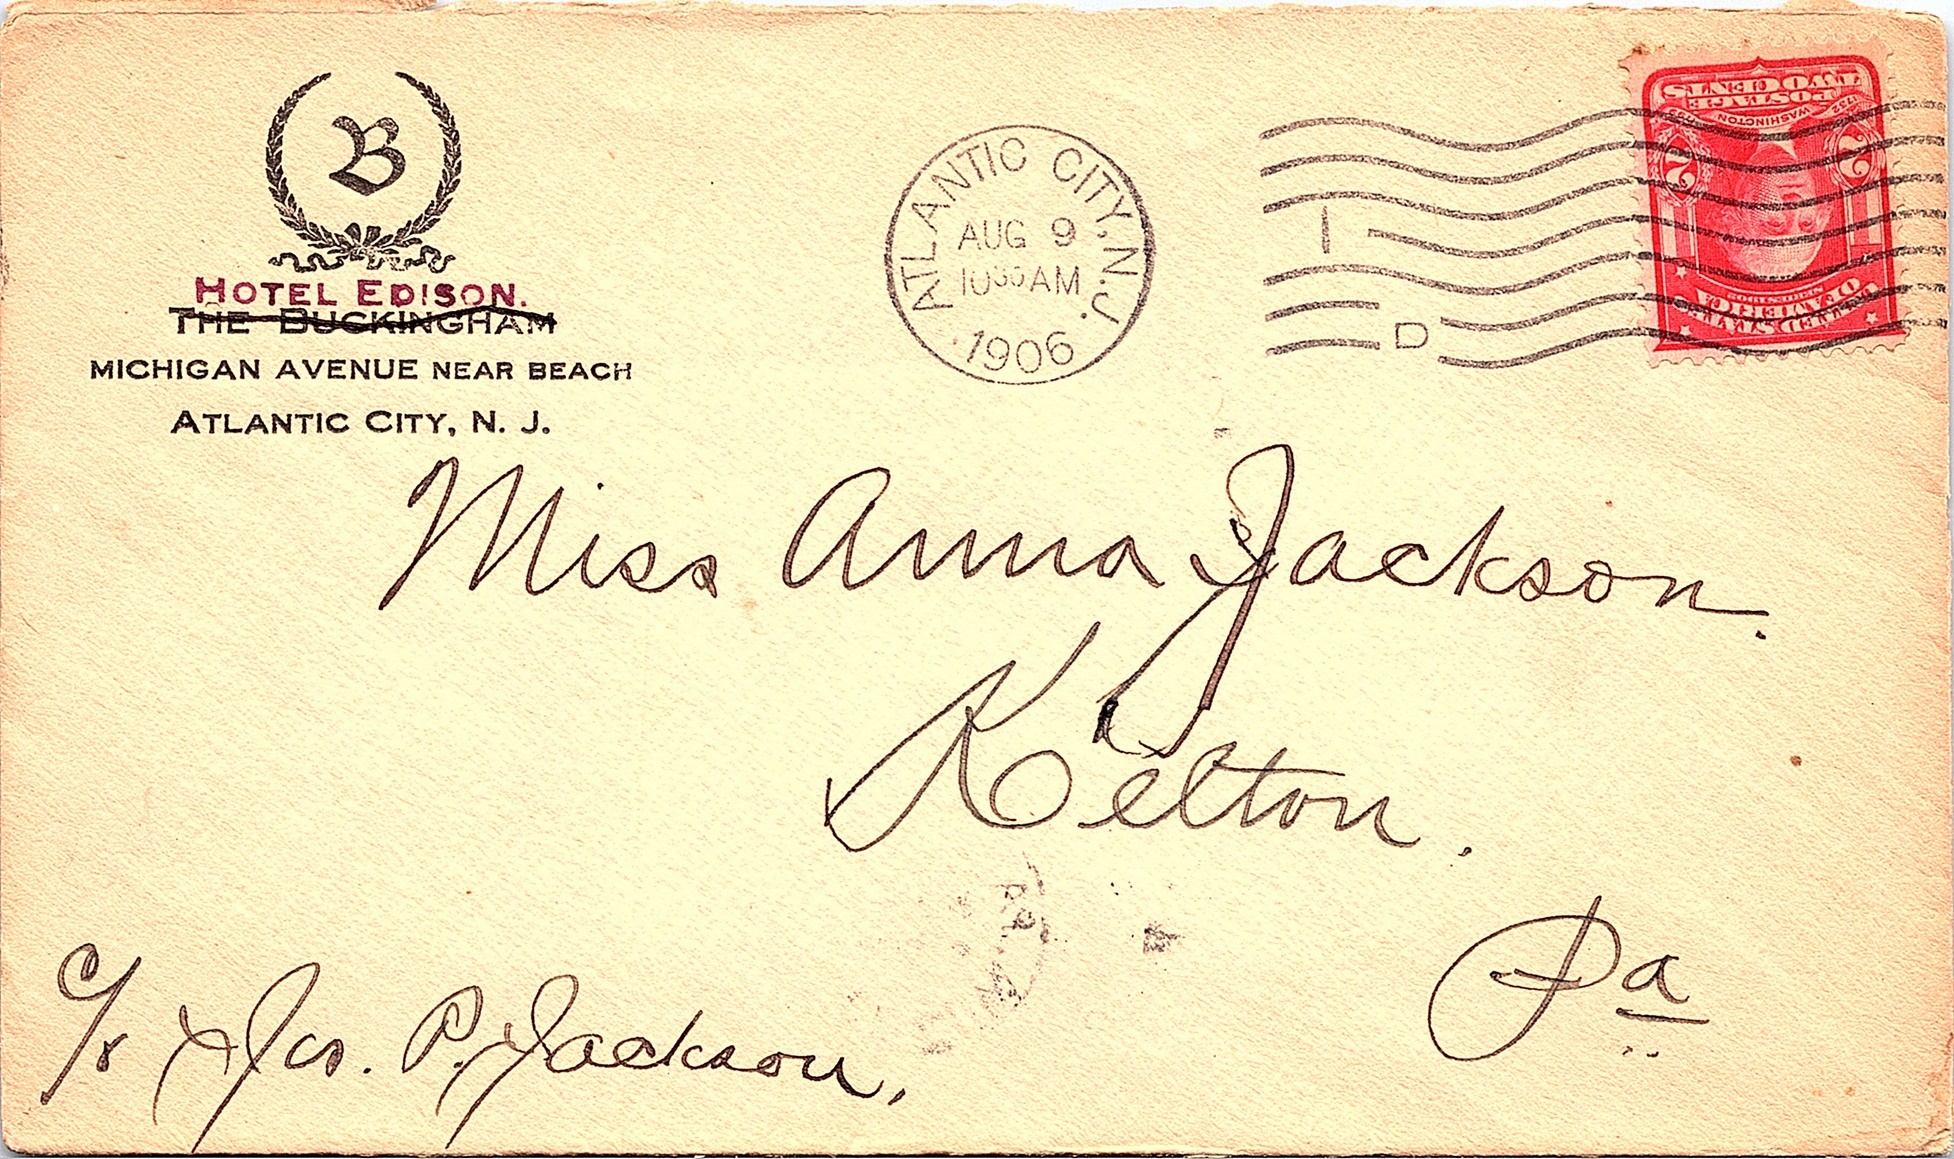 B
HOTEL EDISON.
THE BUCKINGHAM
MICHIGAN AVENUE NEAR BEACH
ATLANTIC CITY, N. J.
ATLANTIC CITY, N.J.
AUG 9
10 AM
1906
1
D
UNITED STATES
OF AMERICA
2 2
1732 WASHINGTON 1799
POSTAGE
TWO CENTS
Miss Anna Jackson.
Kelton.
Pa
c/o Jas. P. Jackson,